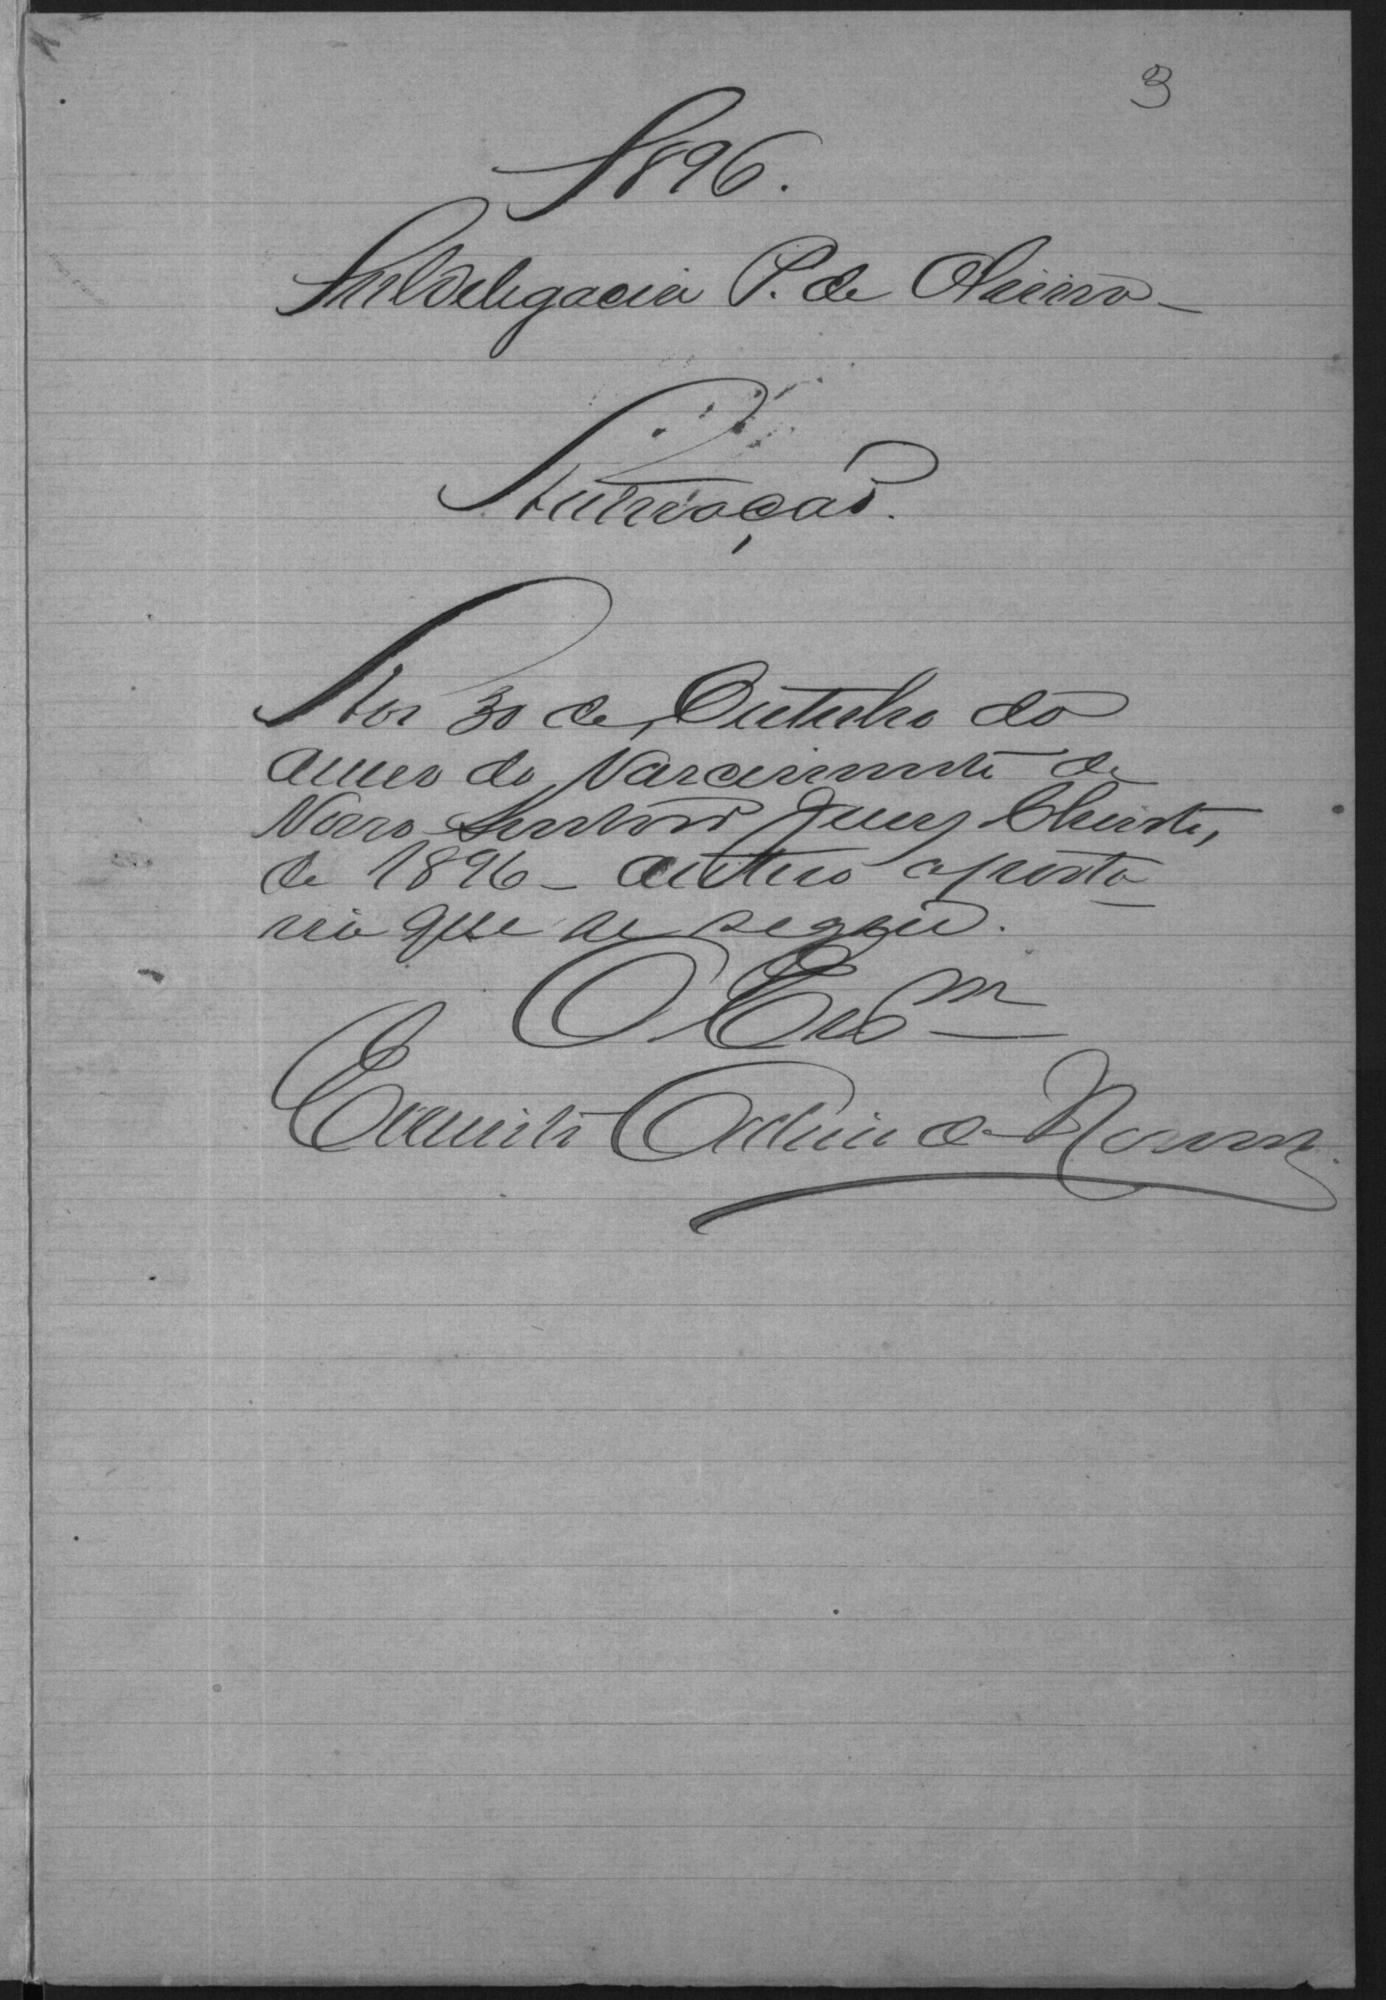 3
1896.
Subdelegacia P. de
Autuação.
Aos 30 de Outubro do
anno do Nascimento de
Nosso Senhor Jesus Christo,
de 1896 - autuo a porta
ria que se segue.
O Esc<sup>m</sup>
de